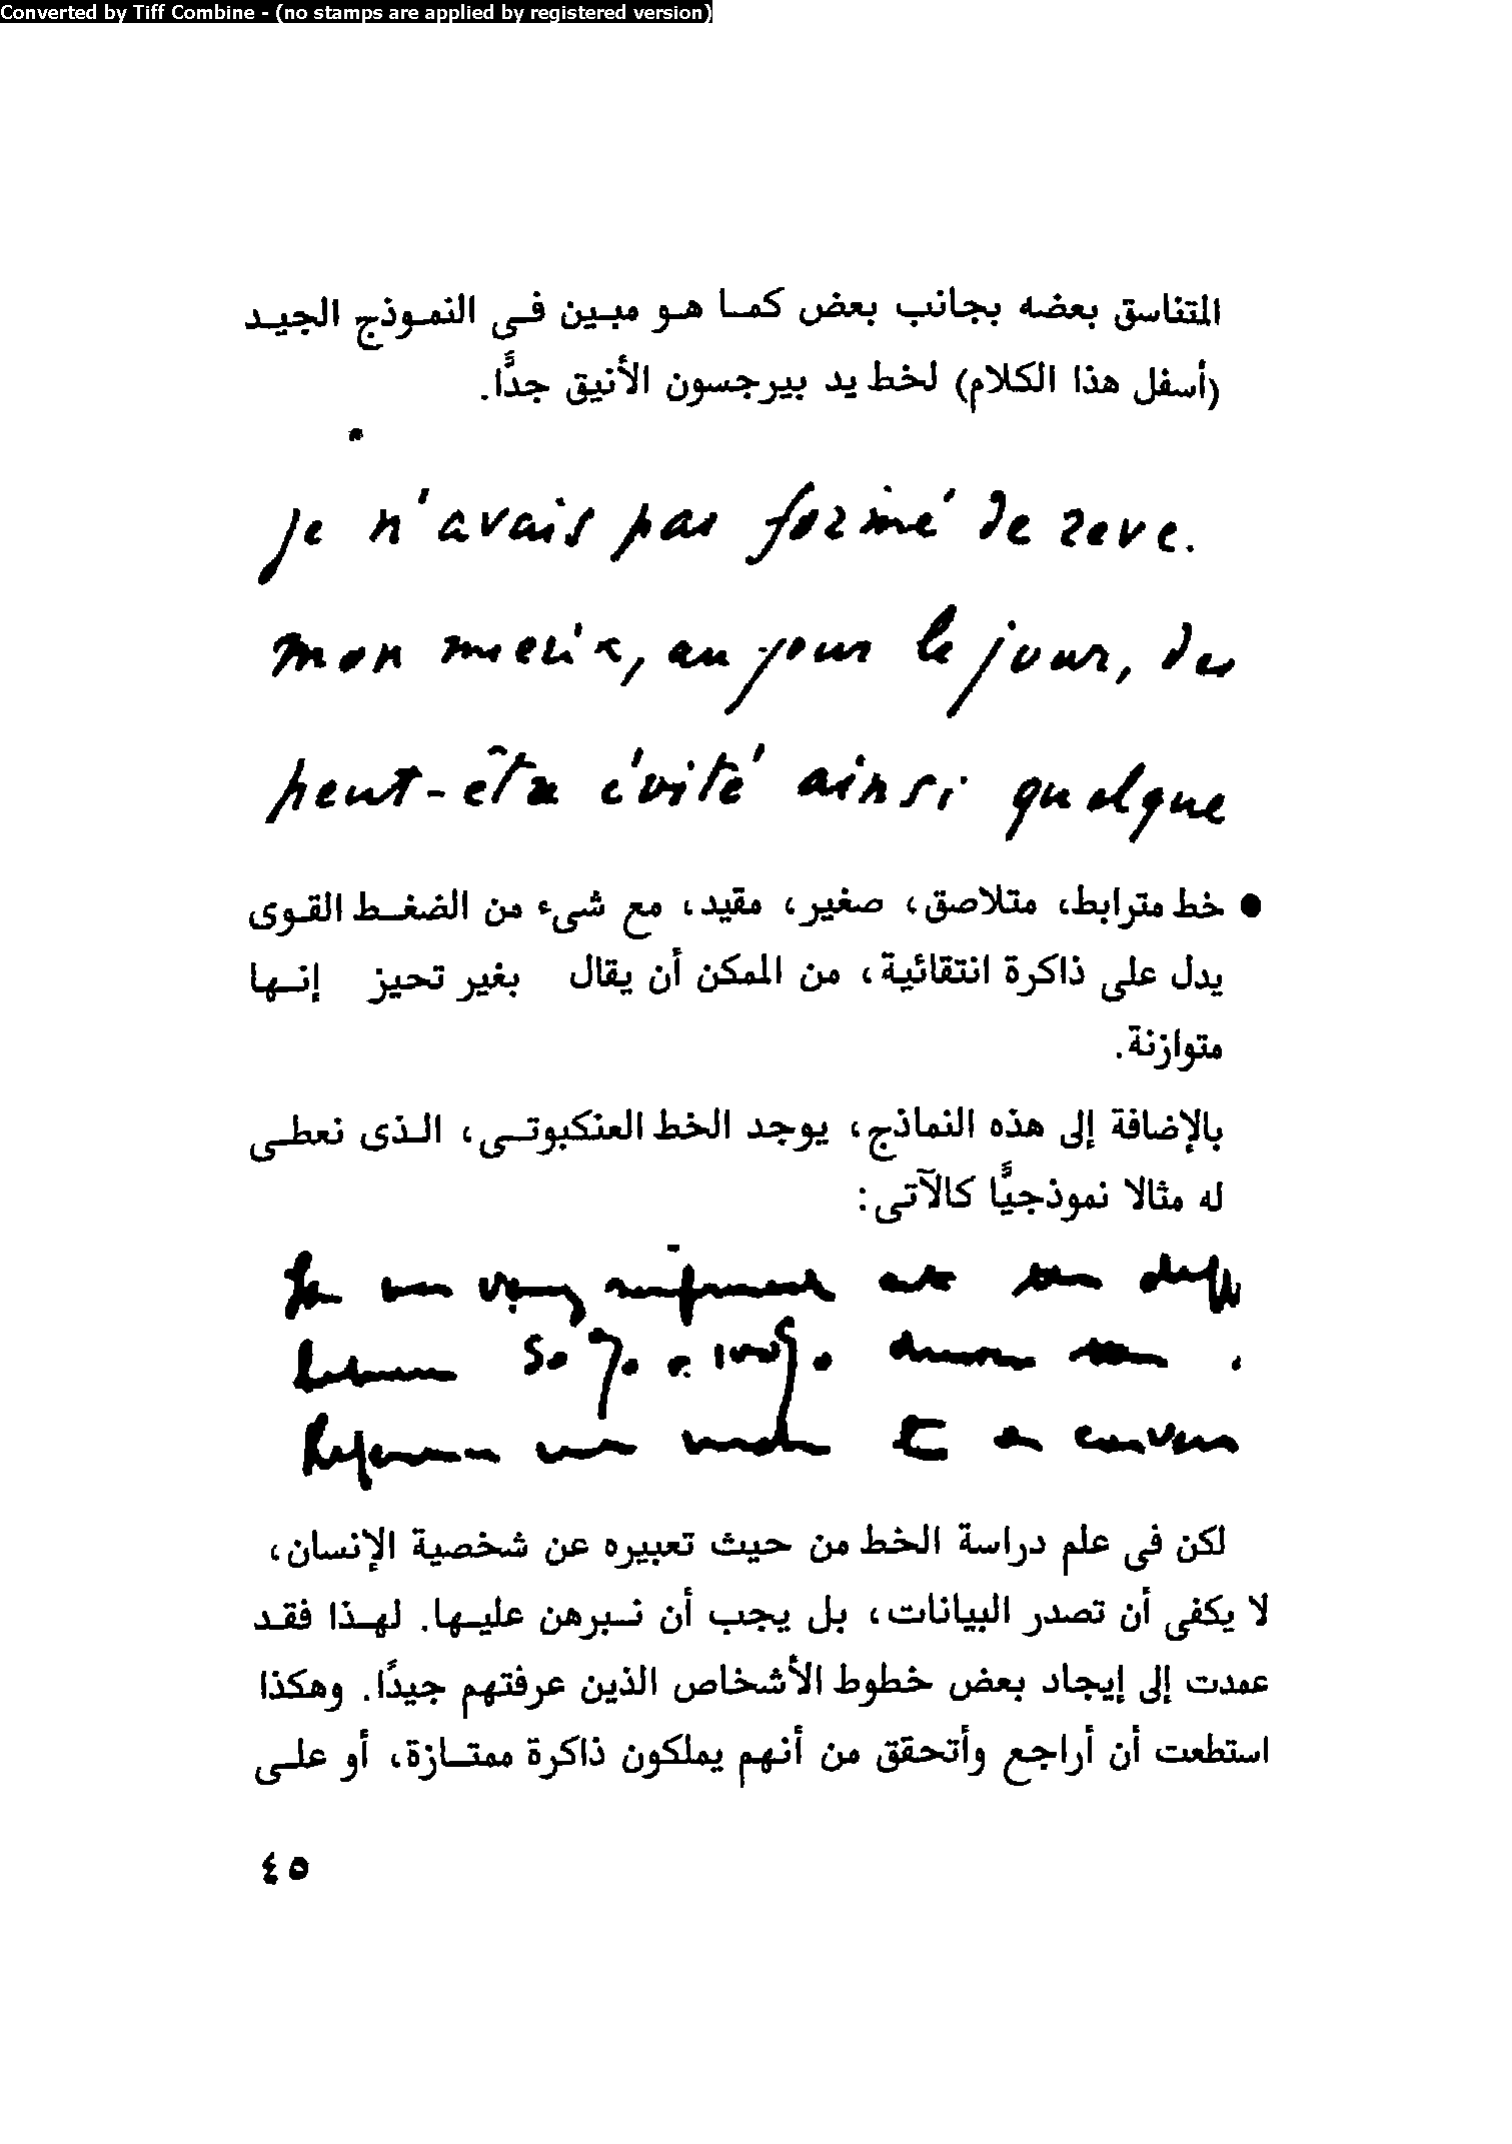 Converted by Tiff Combine - (no stamps are applied by registered version)
المتناسق بعضه بجانب بعض كمـا هـو مبـين فـى النمـوذج الجيـد
(أسفل هذا الكلام) لخط يد بيرجسون الأنيق جدًّا.
je n'avais pas formé de reve.
mon mieux, au jour le jour, des
peut-être évité ainsi quelque
● خط مترابط، متلاصق، صغير، مقيد، مع شىء من الضغـط القـوى
يدل على ذاكرة انتقائية، من الممكن أن يقال بغير تحيز إنـها
متوازنة.
بالإضافة إلى هذه النماذج، يوجد الخط العنكبوتـى، الـذى نعطـى
له مثالا نموذجيًّا كالآتى:
50% a 100%
لكن فى علم دراسة الخط من حيث تعبيره عن شخصية الإنسان،
لا يكفى أن تصدر البيانات، بل يجب أن نـبرهن عليـها. لهـذا فقـد
عمدت إلى إيجاد بعض خطوط الأشخاص الذين عرفتهم جيدًا. وهكذا
استطعت أن أراجع وأتحقق من أنهم يملكون ذاكرة ممتـازة، أو علـى
٤٥